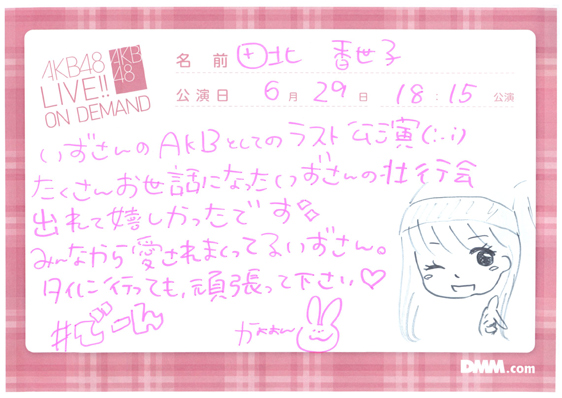 AKB48
LIVE!!
ON DEMAND
AKB
48
名前 田北 香世子
公演日 6月29日 18:15 公演
いずさんのAKBとしてのラスト公演(;_;)
たくさんお世話になったいずさんの壮行会
出れて嬉しかったです
みんなから愛されまくってるいずさん。
タイに行っても、頑張って下さい♡
#ぞーん
かぉぉん
DMM.com